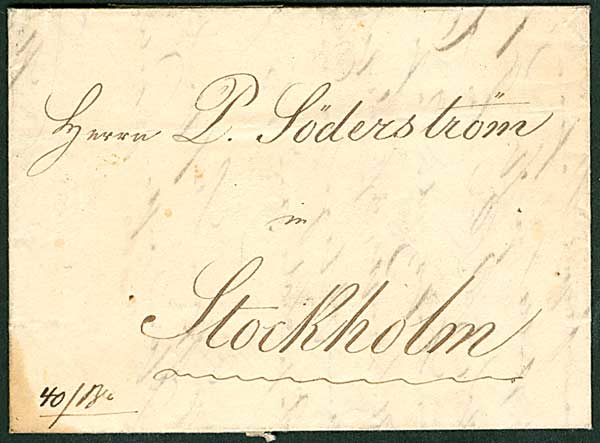 Herrn P. Söderström
in
Stockholm